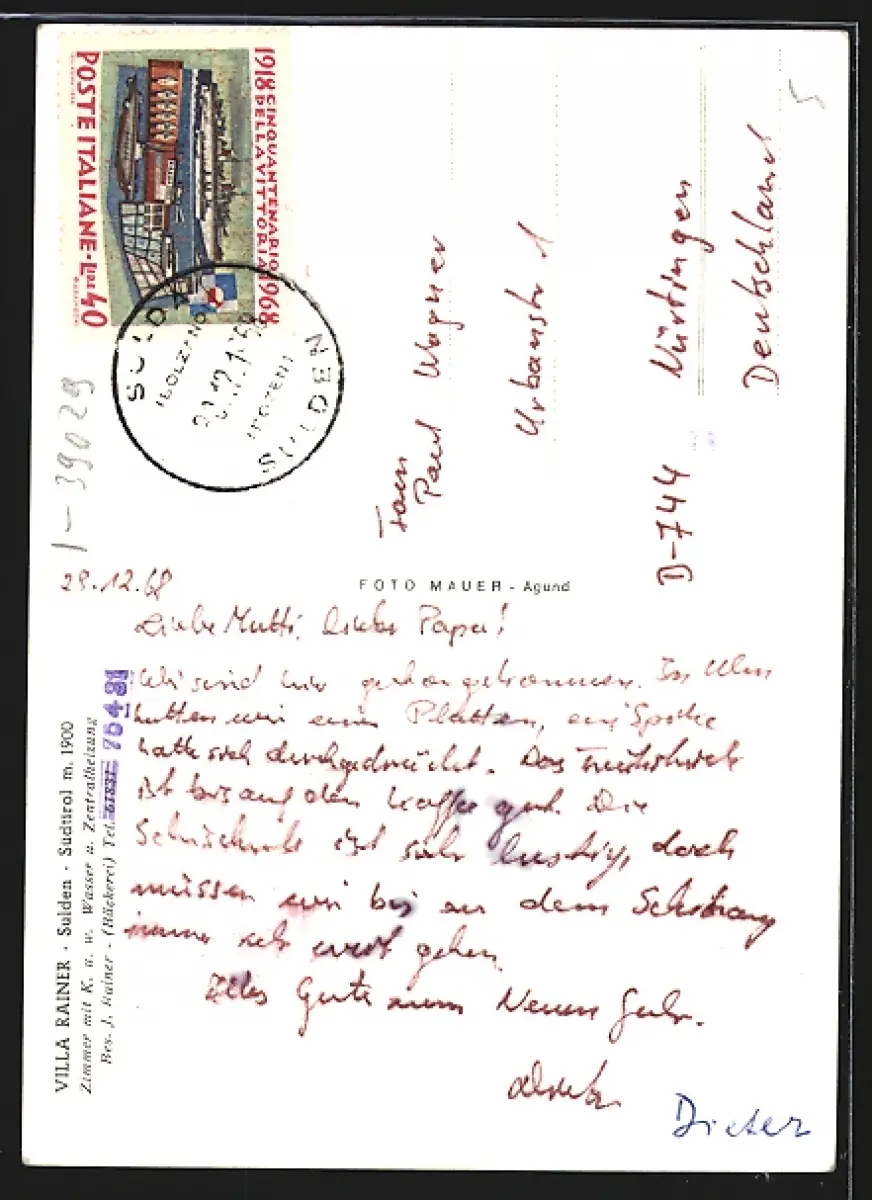 POSTE ITALIANE - LIRE 40
1918 CINQUANTENARIO
DELLA VITTORIA 1968
SOLDA
(BOLZANO)
(BOZEN)
SULDEN
1-39029
5
Paul Wagner
Urbanstr 1
D-744 Nürtingen
Deutschland
FOTO MAUER - Agund
29.12.68
Liebe Mutti, lieber Papa!
Wir sind hier gut angekommen. In Ulm
hatten wir einen Platten, eine Speiche
hatte sich durchgedrückt. Das Frühstück
ist bis auf den Kaffee gut. Die
ist sehr lustig, doch
müssen wir bis zu dem
immer sehr weit gehen.
Alles Gute zum Neuen Jahr.
Dieter
VILLA RAINER · Sulden · Südtirol m. 1900
Zimmer mit K. u. w. Wasser u. Zentralheizung
Bes. J. Rainer - (Bäckerei) Tel. 75431